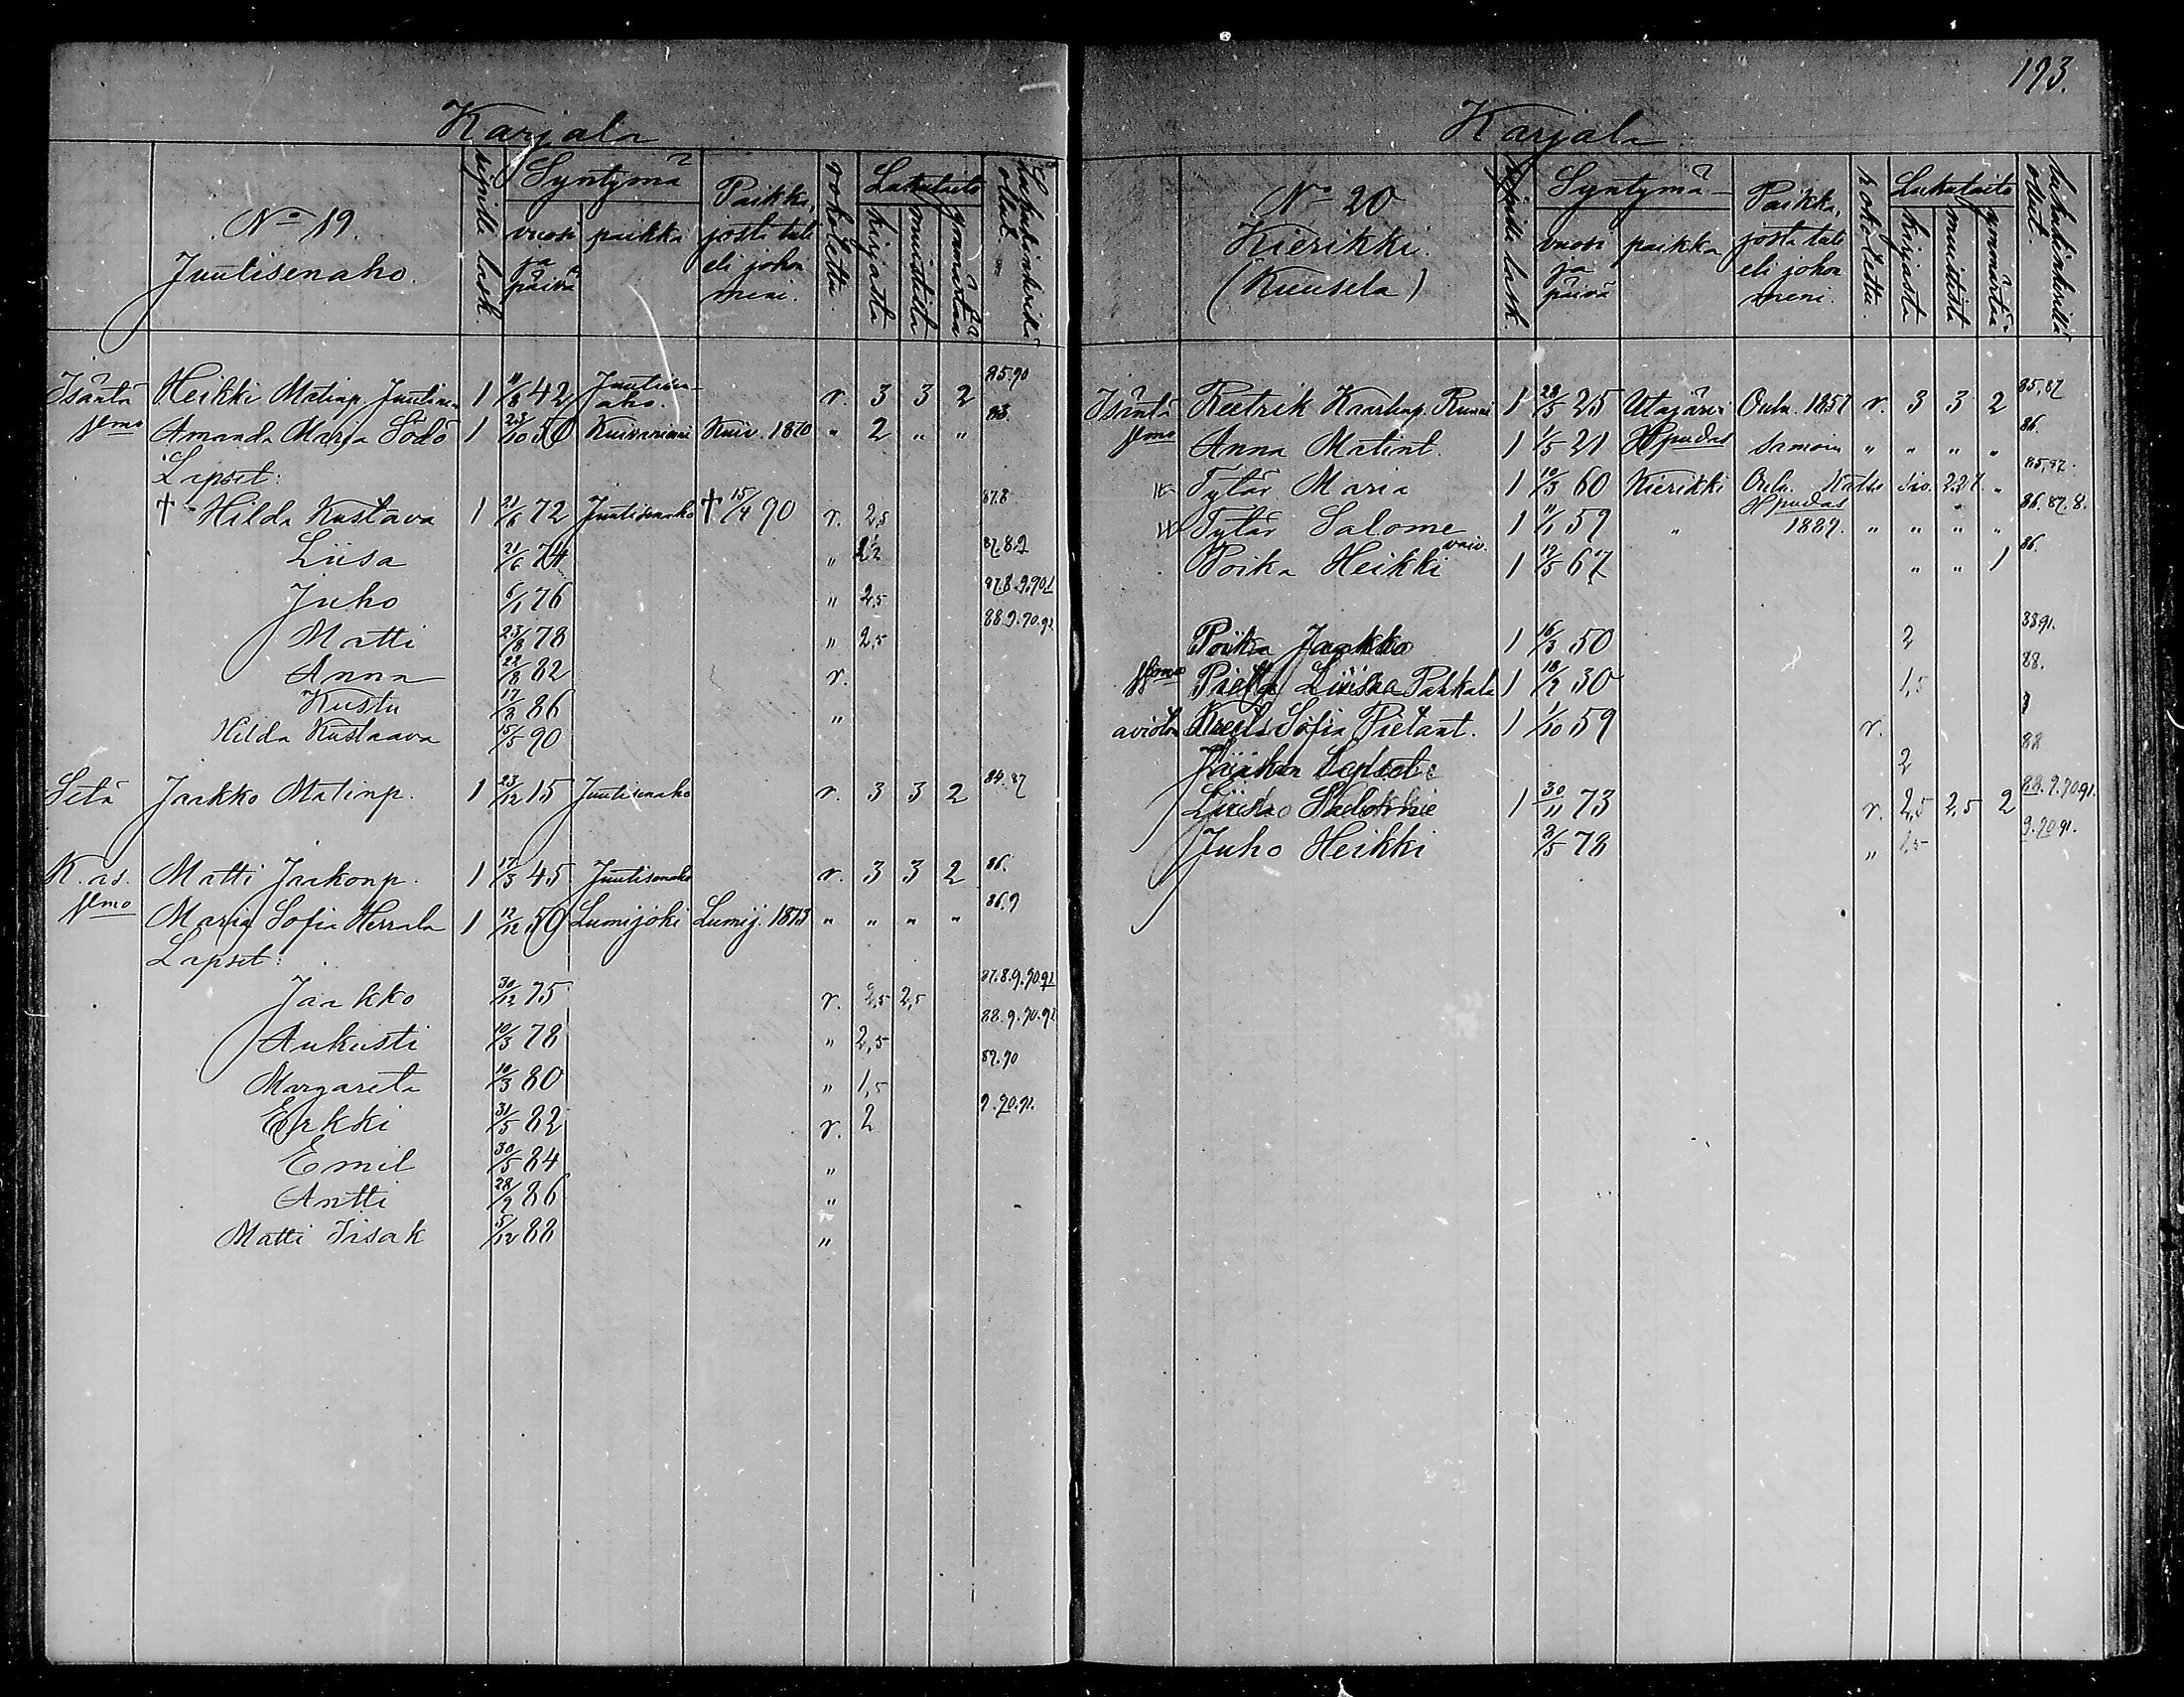 Karjala
No 19.
Juutisenaho.
ripille lask.
Syntymä
vuosi ja päivä
paikka
Paikka, josta tuli eli johon meni.
rokotettu.
Lukutaito
kirjasta
muistista
ymmärtää
Lukukinkerillä ollut.
Isäntä Heikki Matinp. Juutinen 1 42 Juutisenaho. r. 3 3 2 85.90
Amanda Maria Södö 1 23/10 50 Kuivaniemi Kuiv. 1870 " 2 " " 83.
Lapset:
† Hilda Kustava 1 21/6 72 Juutisenaho † 15/4 90 r. 2,5 87.8
Liisa 21/6 74 " 87.8.9
Juho 6/1 76 " 2,5 87.8.9.90.1
Matti 23/8 78 " 2,5 88.9.90.91
Anna 22/8 82 r.
Kustu 86 "
Hilda Kustaava 15/5 90
Setä Jaakko Matinp. 1 23/12 15 Juutisenaho r. 3 3 2 84.87
K. as. Matti Jaakonp. 1 17/3 45 Juutisenaho r. 3 3 2 86.
Maria Sofia Herrala 1 12/12 50 Lumijoki Lumij. 1873 " " " " 86.9
Lapset:
Jaakko 30/12 75 r. 2,5 2,5 87.8.9.90.91
Aukusti 10/3 78 " 2,5 88.9.90.91
Margareta 10/3 80 " 1,5 89.90
Erkki 31/5 82 r. 2 9.90.91.
Emil 30/5 84 "
Antti 28/9 86 "
Matti Iisak 5/12 88 "
193.
Karjala
No 20
Kierikki.
(Kuusela)
ripille lask.
Syntymä
vuosi ja päivä
paikka
Paikka, josta tuli eli johon meni.
rokotettu.
Lukutaito
kirjasta
muistista
ymmärtää
lukukinkerillä ollut.
Isäntä Reetrik Kaarlenp. Runni 1 25 Utajärvi Oulu. 1857 r. 3 3 2 85,87
Anna Matint. 1 1/5 21 Hpudas samoin " " " " 86.
Tytär Maria 1 10/3 60 Kierikki Oulu. 85,87.
Tytär Salome 1 11/1 59 " Hpudas 1889. " " " " 86.87.8.
Poika Heikki vaiv. 1 19/5 67 " " 1 86.
Poika Jaakko 1 16/3 50 2 88 91.
Liisa Pahkala 1 30 1,5 88.
Sofia Pietant. 1 1/10 59 r.
Jaakon Lapset: 2 88
Liisa Salome 1 30/11 73 r. 2,5 2,5 2 88.9.90.91.
Juho Heikki 78 " 1,5 9.90.91.